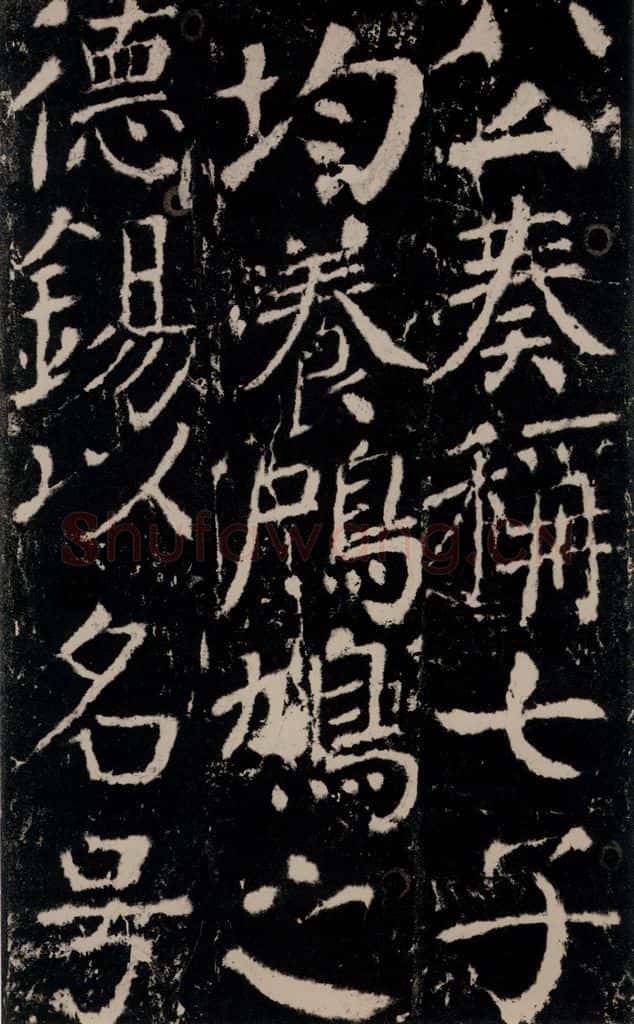 公奏稱七子
均養鳲鳩之
德錫以名号
Shufawang.CN